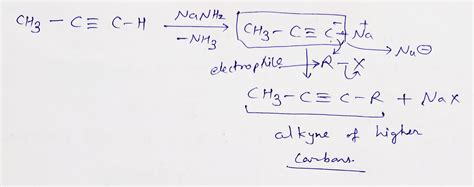 CH₃ – C ≡ C–H  NaNH₂ / –NH₃ →  CH₃ – C ≡ C⁻ + Na⁺ → Nu⊖
electrophile → R – X
CH₃ – C ≡ C – R + NaX
alkyne of higher
carbons.